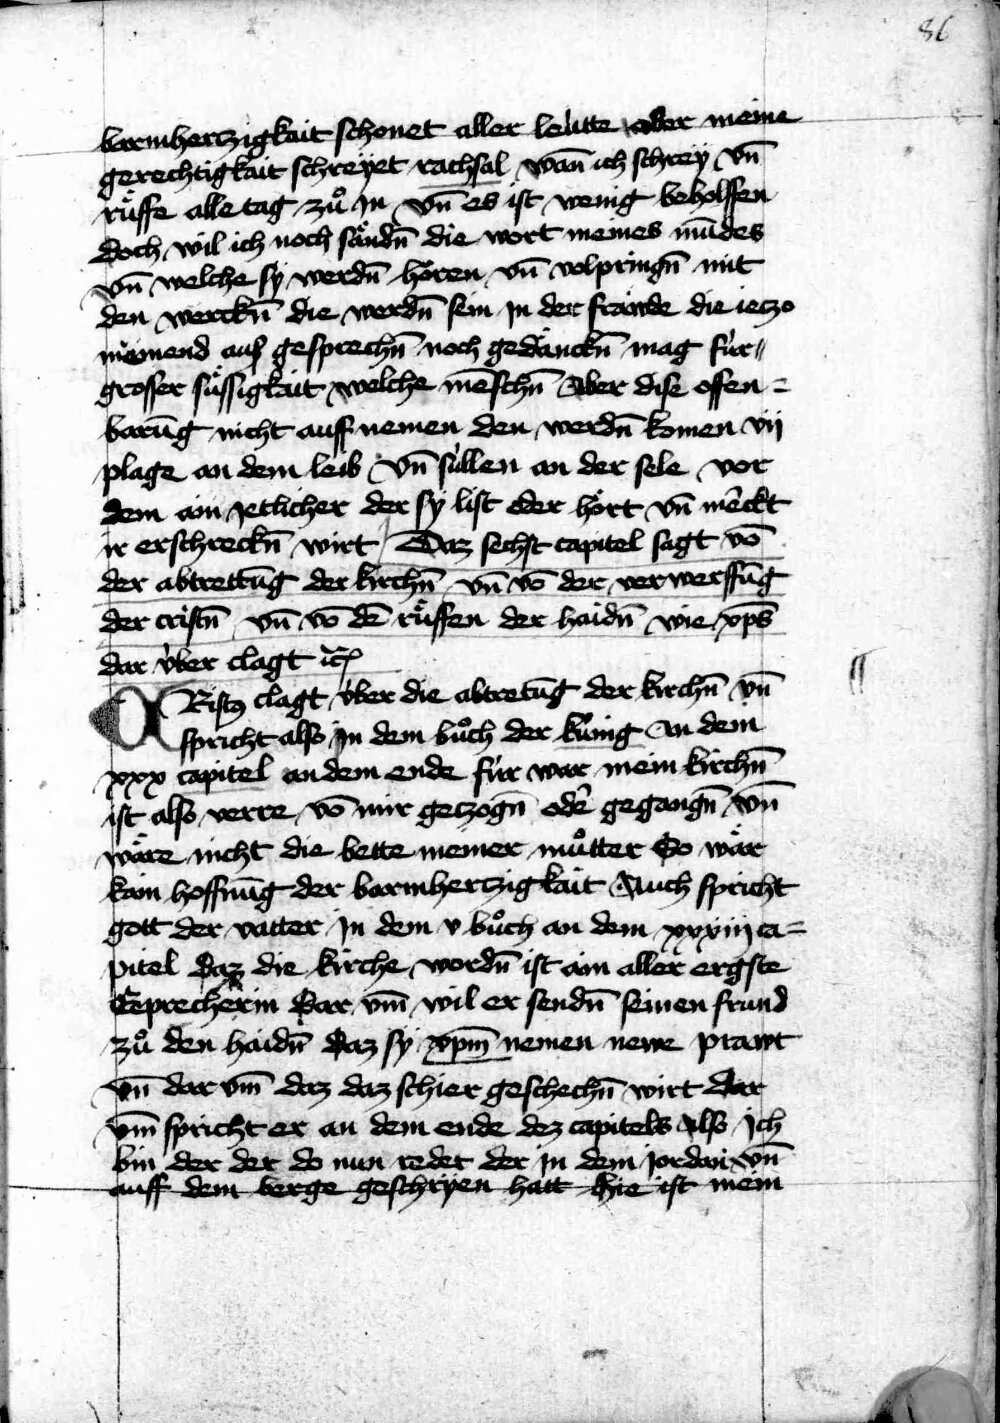 86
barmhertzigkait schonet aller leu̇tte aber meine
gerechtigkait schreyet rachsal wan̄ ich schrey vn̄
rüffe alle tag zů In vn̄ es ist wenig beholffen
doch wil ich noch sändn̄ die wort meines mūdes
vn̄ welche sy werdn̄ hören vn̄ volpringn̄ mit
den werckn̄ die werdn̄ sein In der fräwde die ietzo
niemend auß gesprechn̄ noch gedänckn̄ mag für
grosser süssigkait welche mēschn̄ Aber dise offen=
barūg nicht auff nemen den werdn̄ komen vij
plage an dem leib vn̄ süllen an der sele vor
dem ain Jetlicher der sy list oder hört vn̄ mēckt
ir erschreckn̄ wirt Daz sechst capitel sagt vō
der abtrettūg der kirchn̄ vn̄ vō der verwerffūg
der cristn̄ vn̄ vō dē rüffen der haidn̄ wie xp̄s
dar vber clagt
XRistꝰ clagt vber die abtretūg der kirchn̄ vn̄
spricht also In dem bůch der künig An dem
xxx capitel an dem ende für war mein kirchn̄
ist also verre vō mir getzogn̄ odē gegangn̄ vn̄
wäre nicht die bette meiner můtter So wär
kain hoffnūg der barmhertzigkait Auch spricht
gott der vatter In dem v bůch an dem xxxiij ca=
pitel Daz die kirche wordn̄ ist ain aller ergste
Eeprecherin Dar vm̄ wil er sendn̄ seinen frund
zů den haidn̄ Daz sy xpm̄ nemen newe prawt
vn̄ dar vm̄ daz daz schier geschechn̄ wirt dar
vm̄ spricht er an dem ende dez capitels Also Ich
bin der der do nun redet der In dem Jordan vn̄
auff dem berge geschryen hatt hie ist mein